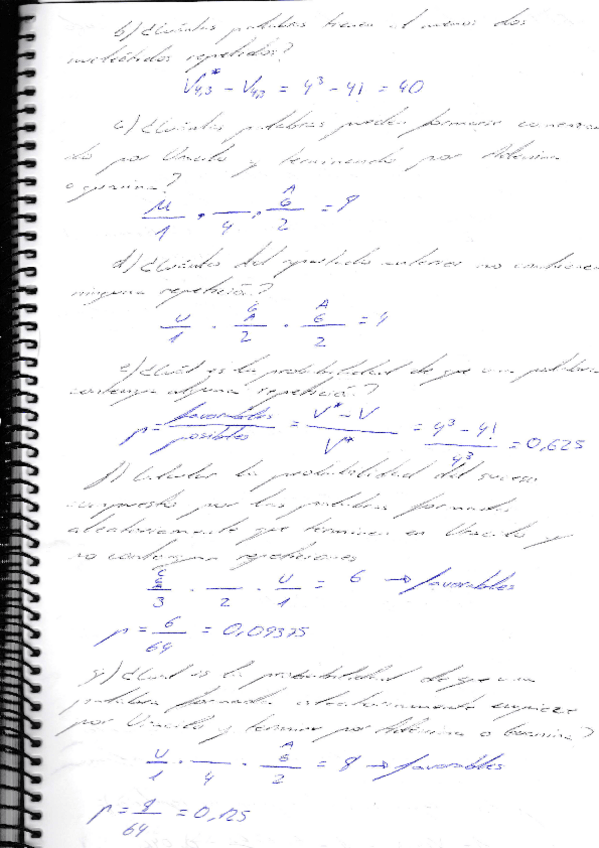 b) ¿Cuántas palabras tienen al menos dos
nucleótidos repetidos?
V*4,3 - V4,3 = 4³ - 4! = 40
c) ¿Cuántas palabras pueden formarse comenzan
do por Uracilo y terminando por Adenina
o guanina?
A
U . __ . G = 8
1 4 2
d) ¿Cuántas del apartado anterior no contienen
ninguna repetición?
C A
U . A . G = 4
1 2 2
e) ¿Cuál es la probabilidad de que una palabra
contenga alguna repetición?
p = favorables / posibles = V* - V / V* = 4³ - 4! / 4³ = 0,625
f) Calcular la probabilidad del suceso
compuesto por las palabras formadas
aleatoriamente que terminen en Uracilo y
no contengan repeticiones
C
__ . __ . U = 6 → favorables
3 2 1
p = 6 / 64 = 0,09375
g) ¿Cual es la probabilidad de que una
palabra formada aleatoriamente empiece
por Uracilo y termine por Adenina o Guanina?
A
U . __ . G = 8 → favorables
1 4 2
p = 8 / 64 = 0,125